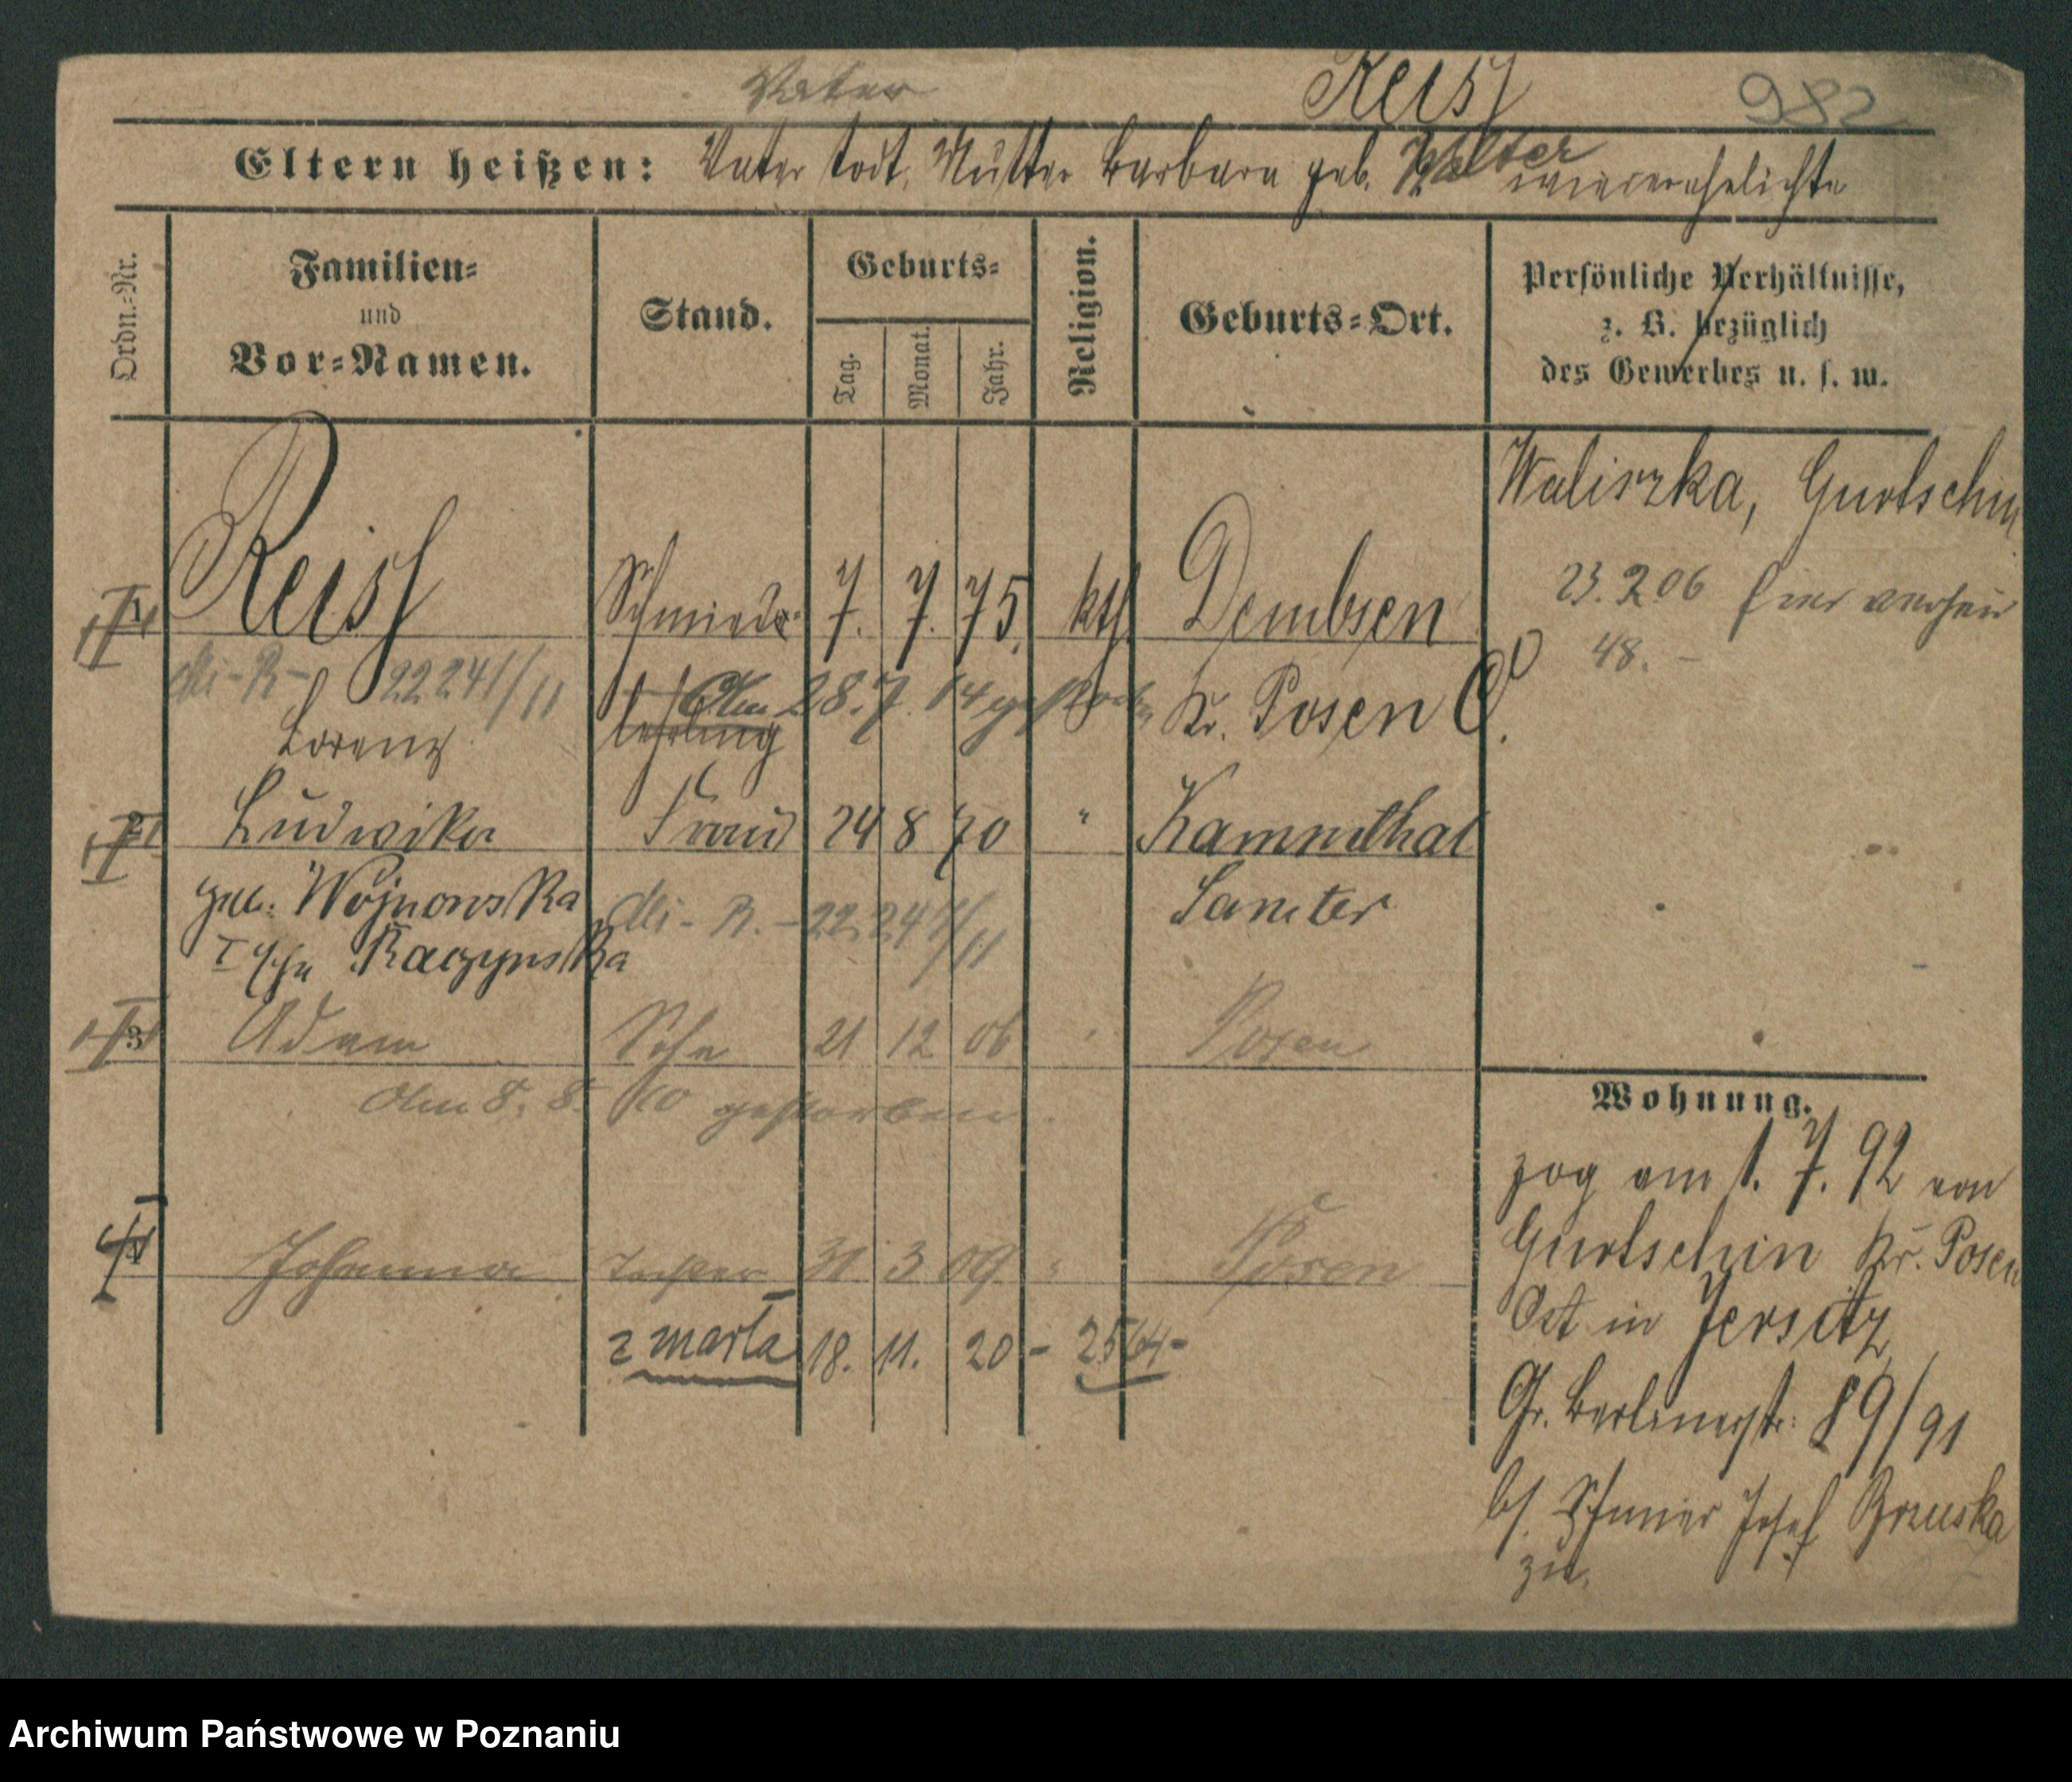 Vater Reiß 982
Eltern heißen: Vater todt, Mutter Barbara geb. Walter wiederverehelichte
Ordn.-Nr.
Familien-
und
Vor-Namen.
Stand.
Geburts-
Tag.
Monat.
Jahr.
Religion.
Geburts-Ort.
Persönliche Verhältnisse,
z. B. bezüglich
des Gewerbes u. s. w.
Waliszka, Gurtschin
1 Reiß Schmiede 7. 7. 75. kth. Dembsen
23. 2 06 hier verheir
48. -
22241/11 Am 28. 7. 14 gestorben Kr. Posen O.
Lorenz lehrling
2 Ludwika Frau 24 8 70 " Kammthal
geb. Wojnowska 22241/11 Samter
Raczynska
3 Adam Sohn 21 12 06 Posen
Am 8. 8. 10 gestorben.
Wohnung.
zog am 1. 7. 92 von
4 Johanna Tochter 31 3 09 " Posen
Gurtschin Kr. Posen
Ost in Jersitz
z marta 18. 11. 20 - 2564 -
Gr. Berlinerstr. 89/91
bei Schmied Josef Brzuska
zu.